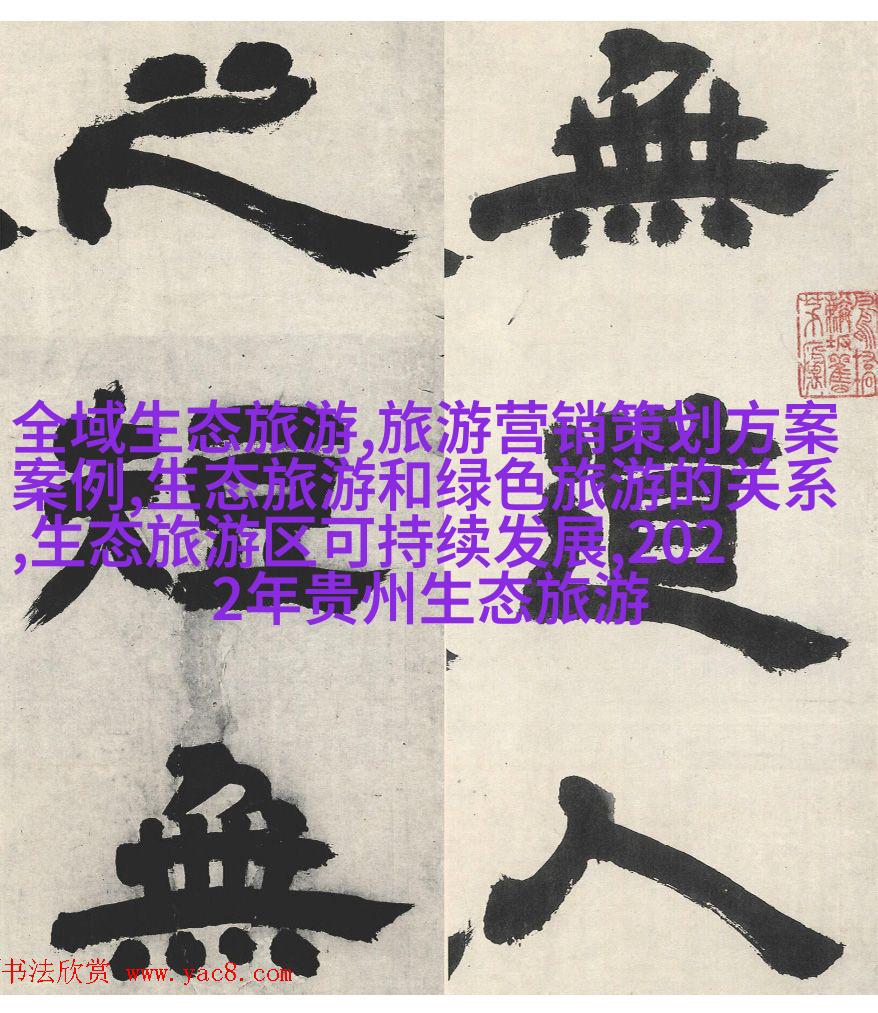 無道人
之短無
全域生态旅游,旅游营销策划方案
案例,生态旅游和绿色旅游的关系
,生态旅游区可持续发展,202
2年贵州生态旅游
书法欣赏 www.yac8.com